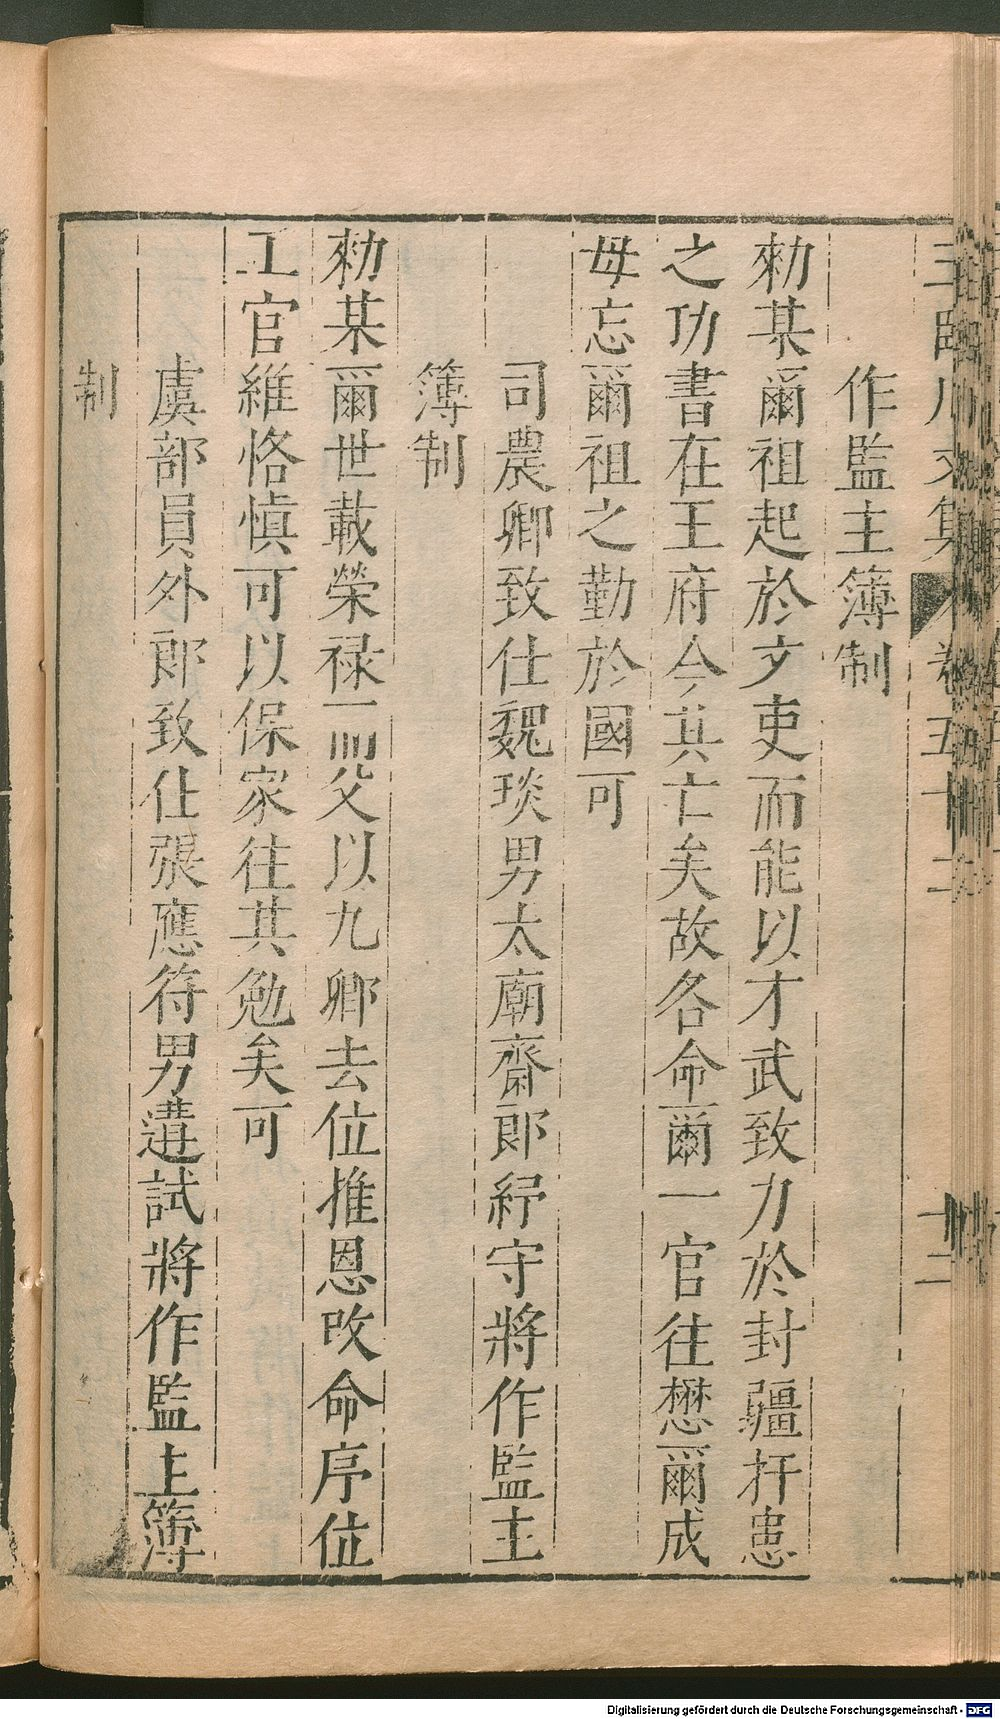 王臨川文集 卷五十二 十二
作監主簿制
勑某爾祖起於文吏而能以才武致力於封疆扞患
之功書在王府今其亡矣故各命爾一官往懋爾成
毋忘爾祖之勤於國可
司農卿致仕魏琰男太廟齋郎紓守將作監主
簿制
勑某爾世載榮禄而父以九卿去位推恩改命序位
工官維恪慎可以保家往其勉矣可
虞部員外郎致仕張應符男遘試將作監主簿
制
Digitalisierung gefördert durch die Deutsche Forschungsgemeinschaft - DFG